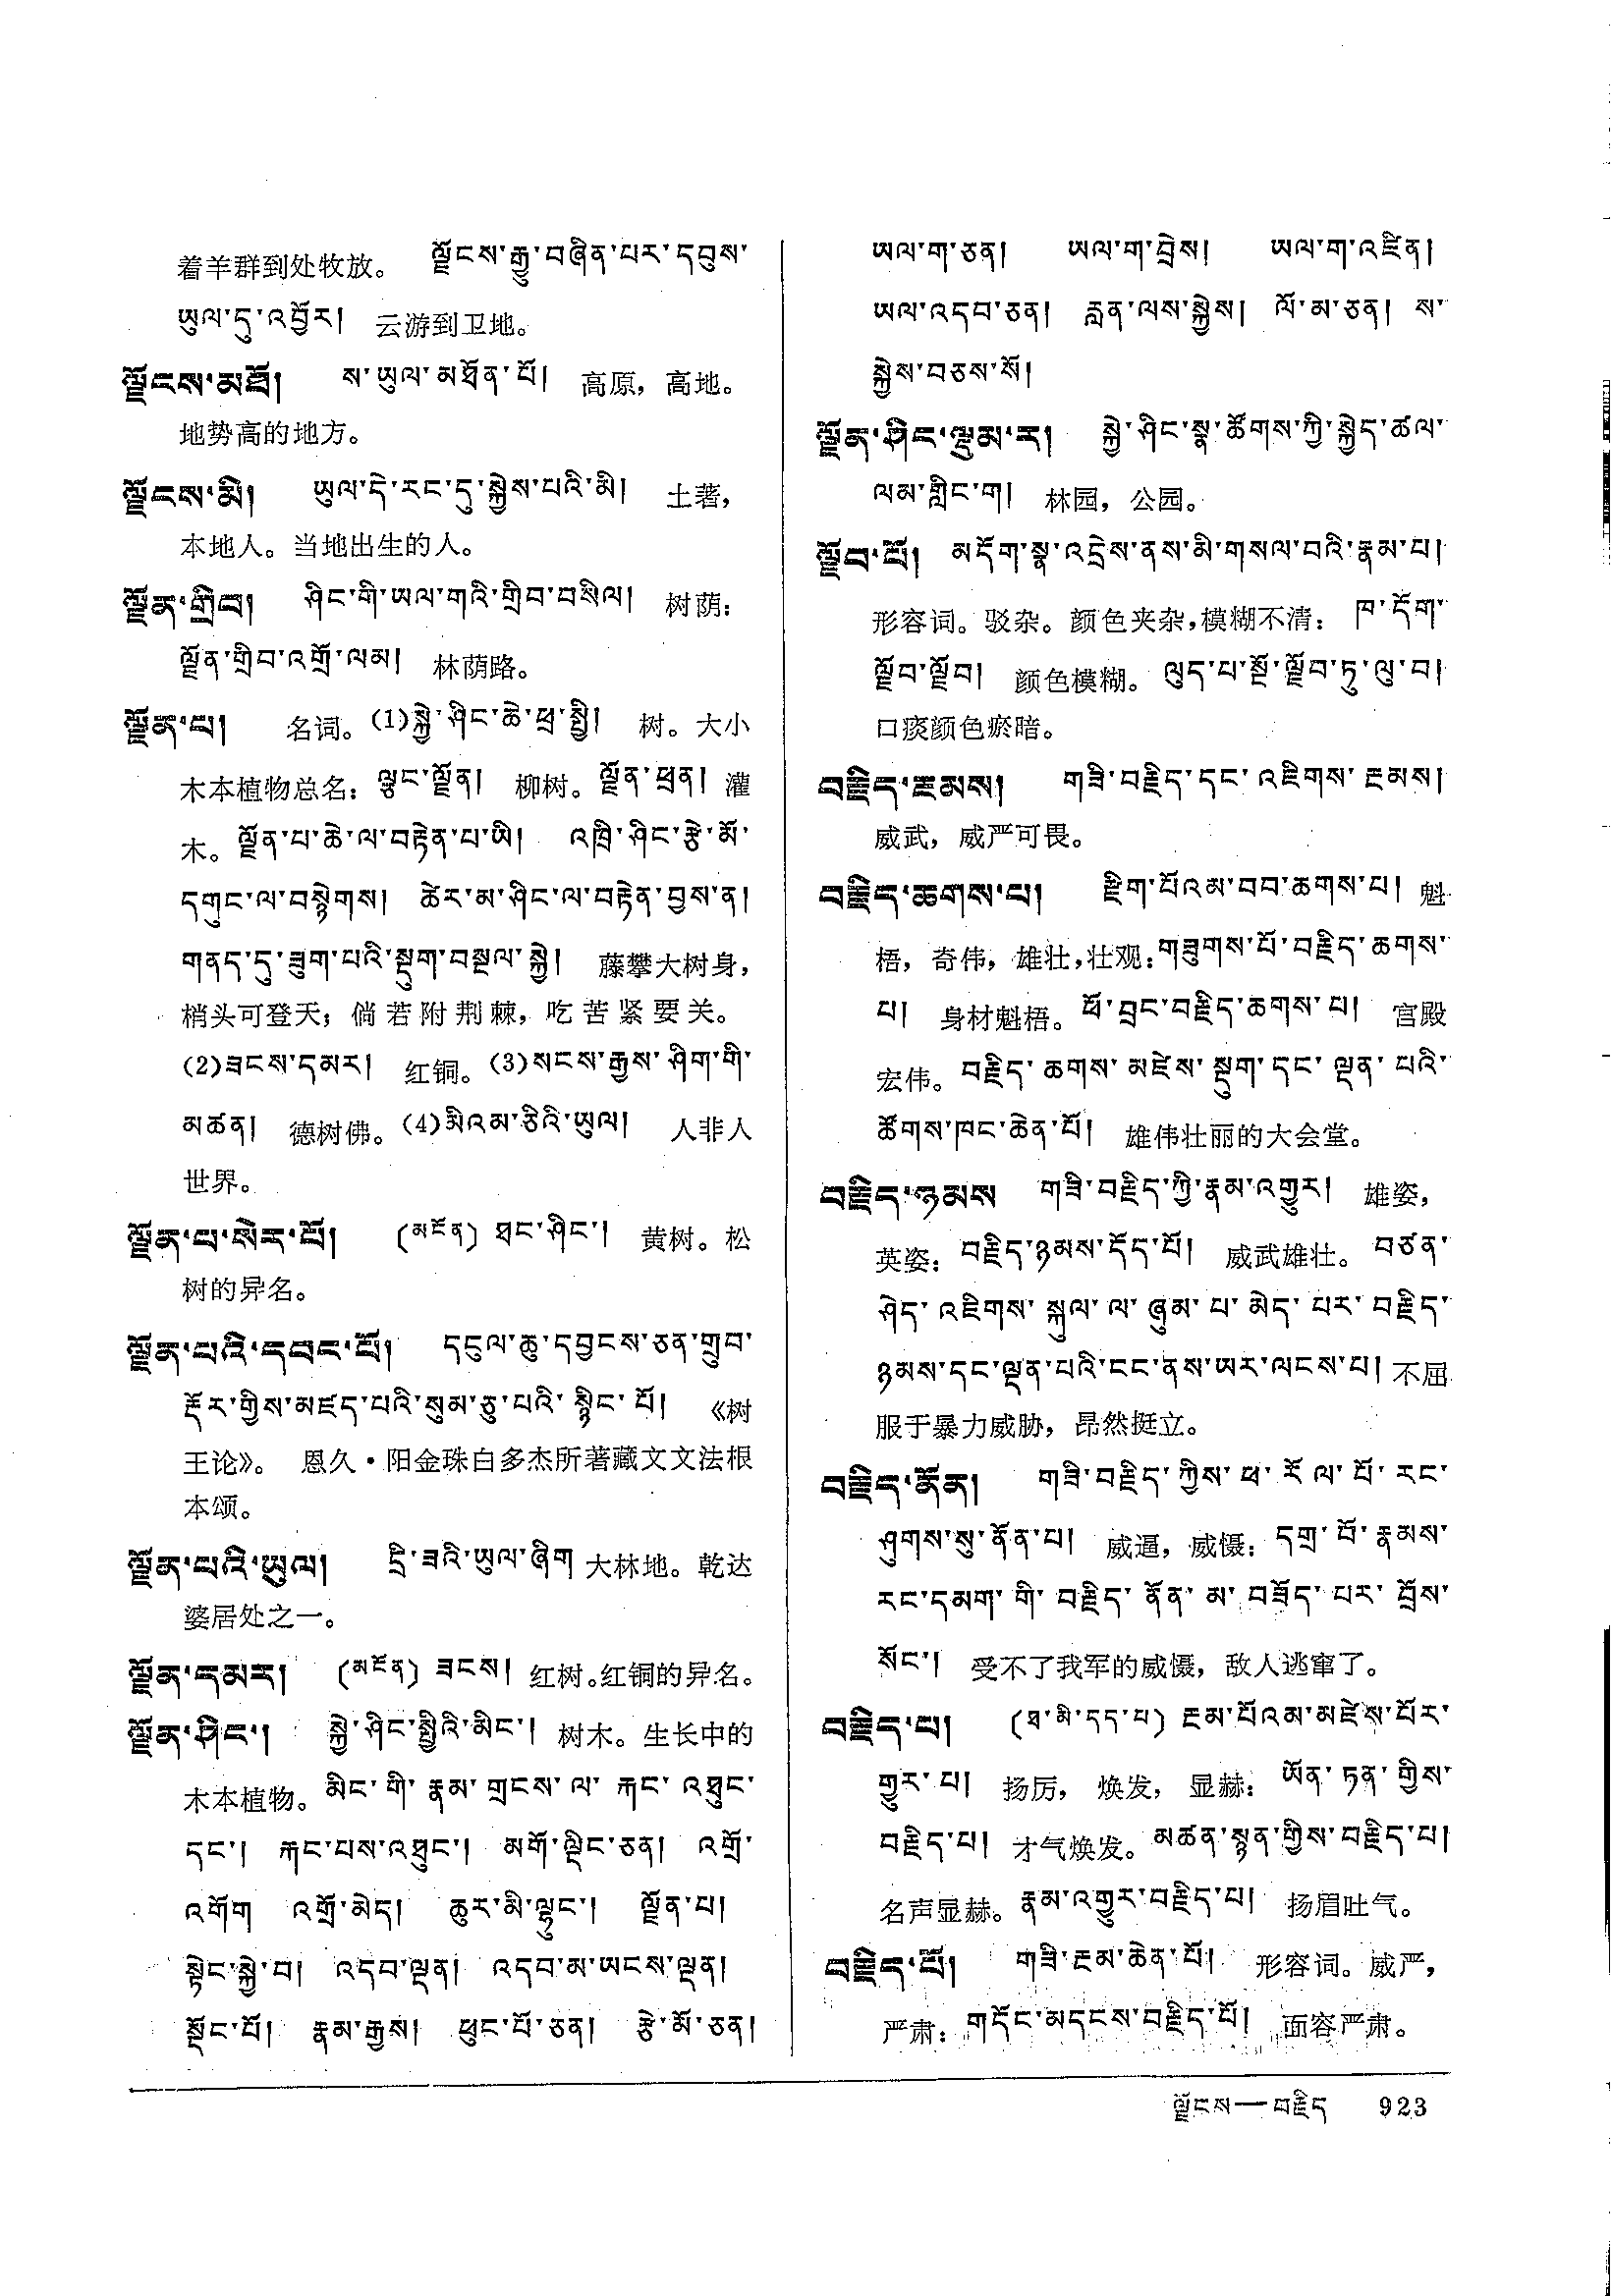 着羊群到处牧放。 ལྗོངས་རྒྱུ་བཞིན་པར་དབུས་
ཡུལ་དུ་འབྱོར། 云游到卫地。
ལྗོངས་མཐོ། ས་ཡུལ་མཐོན་པོ། 高原，高地。
地势高的地方。
ལྗོངས་མི། ཡུལ་དེ་རང་དུ་སྐྱེས་པའི་མི། 土著，
本地人。当地出生的人。
ལྗོན་གྲིབ། ཤིང་གི་ཡལ་གའི་གྲིབ་བསིལ། 树荫：
ལྗོན་གྲིབ་འགྲོ་ལམ། 林荫路。
ལྗོན་པ། 名词。(1)སྐྱེ་ཤིང་ཆེ་ཕྲ་སྤྱི། 树。大小
木本植物总名：ལྕང་ལྗོན། 柳树。ལྗོན་ཕྲན། 灌
木。ལྗོན་པ་ཆེ་ལ་བརྟེན་པ་ཡི། འཁྲི་ཤིང་རྩེ་མོ་
དགུང་ལ་བསྙེགས། ཚེར་མ་ཤིང་ལ་བརྟེན་བྱས་ན།
གནད་དུ་ཟུག་པའི་སྡུག་བསྔལ་སྐྱེ། 藤攀大树身，
梢头可登天；倘若附荆棘，吃苦紧要关。
(2)ཟངས་དམར། 红铜。(3)སངས་རྒྱས་ཤིག་གི་
མཚན། 德树佛。(4)མིའམ་ཅིའི་ཡུལ། 人非人
世界。
ལྗོན་པ་སེར་པོ། (མངོན) ཐང་ཤིང་། 黄树。松
树的异名。
ལྗོན་པའི་དབང་པོ། དངུལ་ཆུ་དབྱངས་ཅན་གྲུབ་
རྡོར་གྱིས་མཛད་པའི་སུམ་ཅུ་པའི་སྙིང་པོ། 《树
王论》。 恩久·阳金珠白多杰所著藏文文法根
本颂。
ལྗོན་པའི་ཡུལ། དྲི་ཟའི་ཡུལ་ཞིག 大林地。乾达
婆居处之一。
ལྗོན་དམར། (མངོན) ཟངས། 红树。红铜的异名。
ལྗོན་ཤིང་། སྐྱེ་ཤིང་སྤྱིའི་མིང་། 树木。生长中的
木本植物。མིང་གི་རྣམ་གྲངས་ལ་རྐང་འཐུང་
དང་། རྐང་པས་འཐུང་། མགོ་ལྡིང་ཅན། འགྲོ་
འགོག འགྲོ་མེད། ཆུར་མི་ལྷུང་། ལྗོན་པ།
སྟེང་སྐྱེ་བ། འདབ་ལྡན། འདབ་མ་ཡངས་ལྡན།
སྡོང་པོ། རྣམ་རྒྱས། ཕུང་པོ་ཅན། རྩེ་མོ་ཅན།
ཡལ་ག་ཅན། ཡལ་ག་བྲེས། ཡལ་ག་འཛིན།
ཡལ་འདབ་ཅན། རླན་ལས་སྐྱེས། ལོ་མ་ཅན། ས་
སྐྱེས་བཅས་སོ།
ལྗོན་ཤིང་ལྡུམ་ར། སྐྱེ་ཤིང་སྣ་ཚོགས་ཀྱི་སྐྱེད་ཚལ་
ལམ་གླིང་ག། 林园，公园。
ལྗོབ་པོ། མདོག་སྣ་འདྲེས་ནས་མི་གསལ་བའི་རྣམ་པ།
形容词。驳杂。颜色夹杂，模糊不清：ཁ་དོག་
ལྗོབ་ལྗོབ། 颜色模糊。ལུད་པ་སྔོ་ལྗོབ་ཏུ་ལུ་བ།
口痰颜色瘀暗。
བརྗིད་ངམས། གཟི་བརྗིད་དང་འཇིགས་ངམས།
威武，威严可畏。
བརྗིད་ཆགས་པ། རྗིག་པོའམ་བབ་ཆགས་པ། 魁
梧，奇伟，雄壮，壮观：གཟུགས་པོ་བརྗིད་ཆགས་
པ། 身材魁梧。ཕོ་བྲང་བརྗིད་ཆགས་པ། 宫殿
宏伟。བརྗིད་ཆགས་མཛེས་སྡུག་དང་ལྡན་པའི་
ཚོགས་ཁང་ཆེན་པོ། 雄伟壮丽的大会堂。
བརྗིད་ཉམས གཟི་བརྗིད་ཀྱི་རྣམ་འགྱུར། 雄姿，
英姿：བརྗིད་ཉམས་དོད་པོ། 威武雄壮。བཙན་
ཤེད་འཇིགས་སྐུལ་ལ་ཞུམ་པ་མེད་པར་བརྗིད་
ཉམས་དང་ལྡན་པའི་ངང་ནས་ཡར་ལངས་པ། 不屈
服于暴力威胁，昂然挺立。
བརྗིད་ནོན། གཟི་བརྗིད་ཀྱིས་ཕ་རོལ་པོ་རང་
ཤུགས་སུ་ནོན་པ། 威逼，威慑：དགྲ་པོ་རྣམས་
རང་དམག་གི་བརྗིད་ནོན་མ་བཟོད་པར་བྲོས་
སོང་། 受不了我军的威慑，敌人逃窜了。
བརྗིད་པ། (ཐ་མི་དད་པ) ངམ་པོའམ་མཛེས་པོར་
གྱུར་པ། 扬厉，焕发，显赫：ཡོན་ཏན་གྱིས་
བརྗིད་པ། 才气焕发。མཚན་སྙན་གྱིས་བརྗིད་པ།
名声显赫。རྣམ་འགྱུར་བརྗིད་པ། 扬眉吐气。
བརྗིད་པོ། གཟི་ངམ་ཆེན་པོ། 形容词。威严，
严肃：གདོང་མདངས་བརྗིད་པོ། 面容严肃。
ལྗོངས—བརྗིད 923